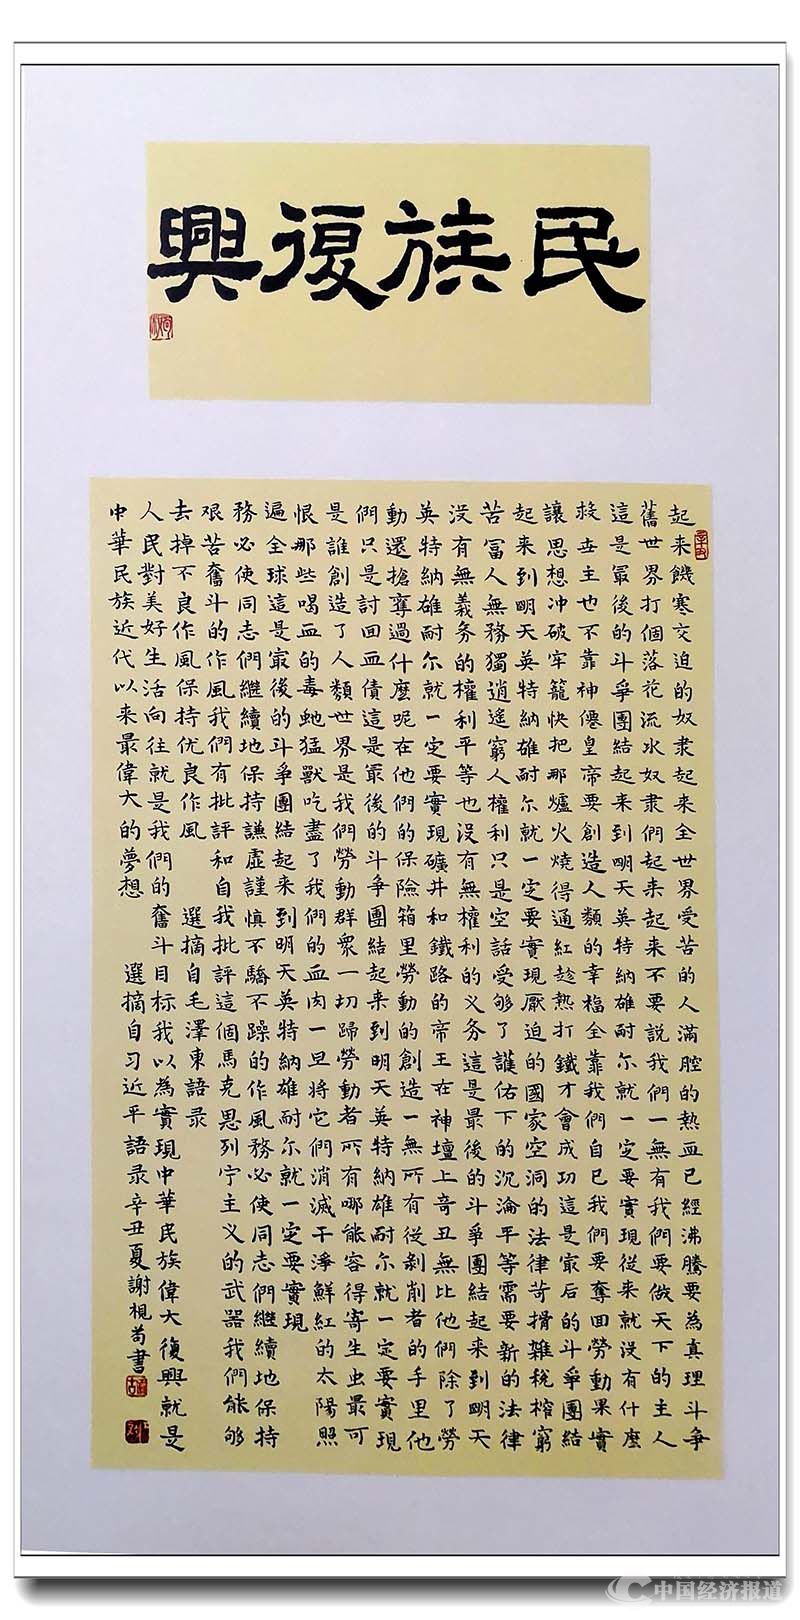 民族復興
起来饑寒交迫的奴隶起来全世界受苦的人滿腔的热血已經沸騰要為真理斗爭
舊世界打個落花流水奴隶們起来起来不要説我們一無有我們要做天下的主人
這是最後的斗爭團結起来到明天英特納雄耐尔就一定要實現從来就沒有什麼
救世主也不靠神僊皇帝要創造人類的幸福全靠我們自己我們要奪回勞動果實
讓思想冲破牢籠快把那爐火燒得通紅趁熱打鐵才會成功這是最后的斗爭團結
起来到明天英特納雄耐尔就一定要實現壓迫的國家空洞的法律苛捐雜税榨窮
苦富人無務獨逍遥窮人權利只是空話受够了護佑下的沉淪平等需要新的法律
沒有無義务的權利平等也沒有無權利的义务這是最後的斗爭團結起来到明天
英特納雄耐尔就一定要實現礦井和鐵路的帝王在神壇上奇丑無比他們除了勞
動還搶奪過什麼呢在他們的保險箱里勞動的創造一無所有從剥削者的手里他
們只是討回血債這是最後的斗爭團結起来到明天英特納雄耐尔就一定要實現
是誰創造了人類世界是我們勞動群衆一切歸勞動者所有哪能容得寄生虫最可
恨那些喝血的毒虵猛獸吃盡了我們的血肉一旦將它們消滅干淨鮮紅的太陽照
遍全球這是最後的斗爭團結起来到明天英特納雄耐尔就一定要實現
務必使同志們継續地保持謙虚謹慎不驕不躁的作風務必使同志們継續地保持
艰苦奮斗的作風我們有批評和自我批評這個馬克思列宁主义的武器我們能够
去掉不良作風保持优良作風 選摘自毛澤東語录
人民對美好生活向往就是我們的奮斗目标我以為實現中華民族偉大復興就是
中華民族近代以来最偉大的夢想 選摘自习近平語录辛丑夏謝苟書
中国经济报道